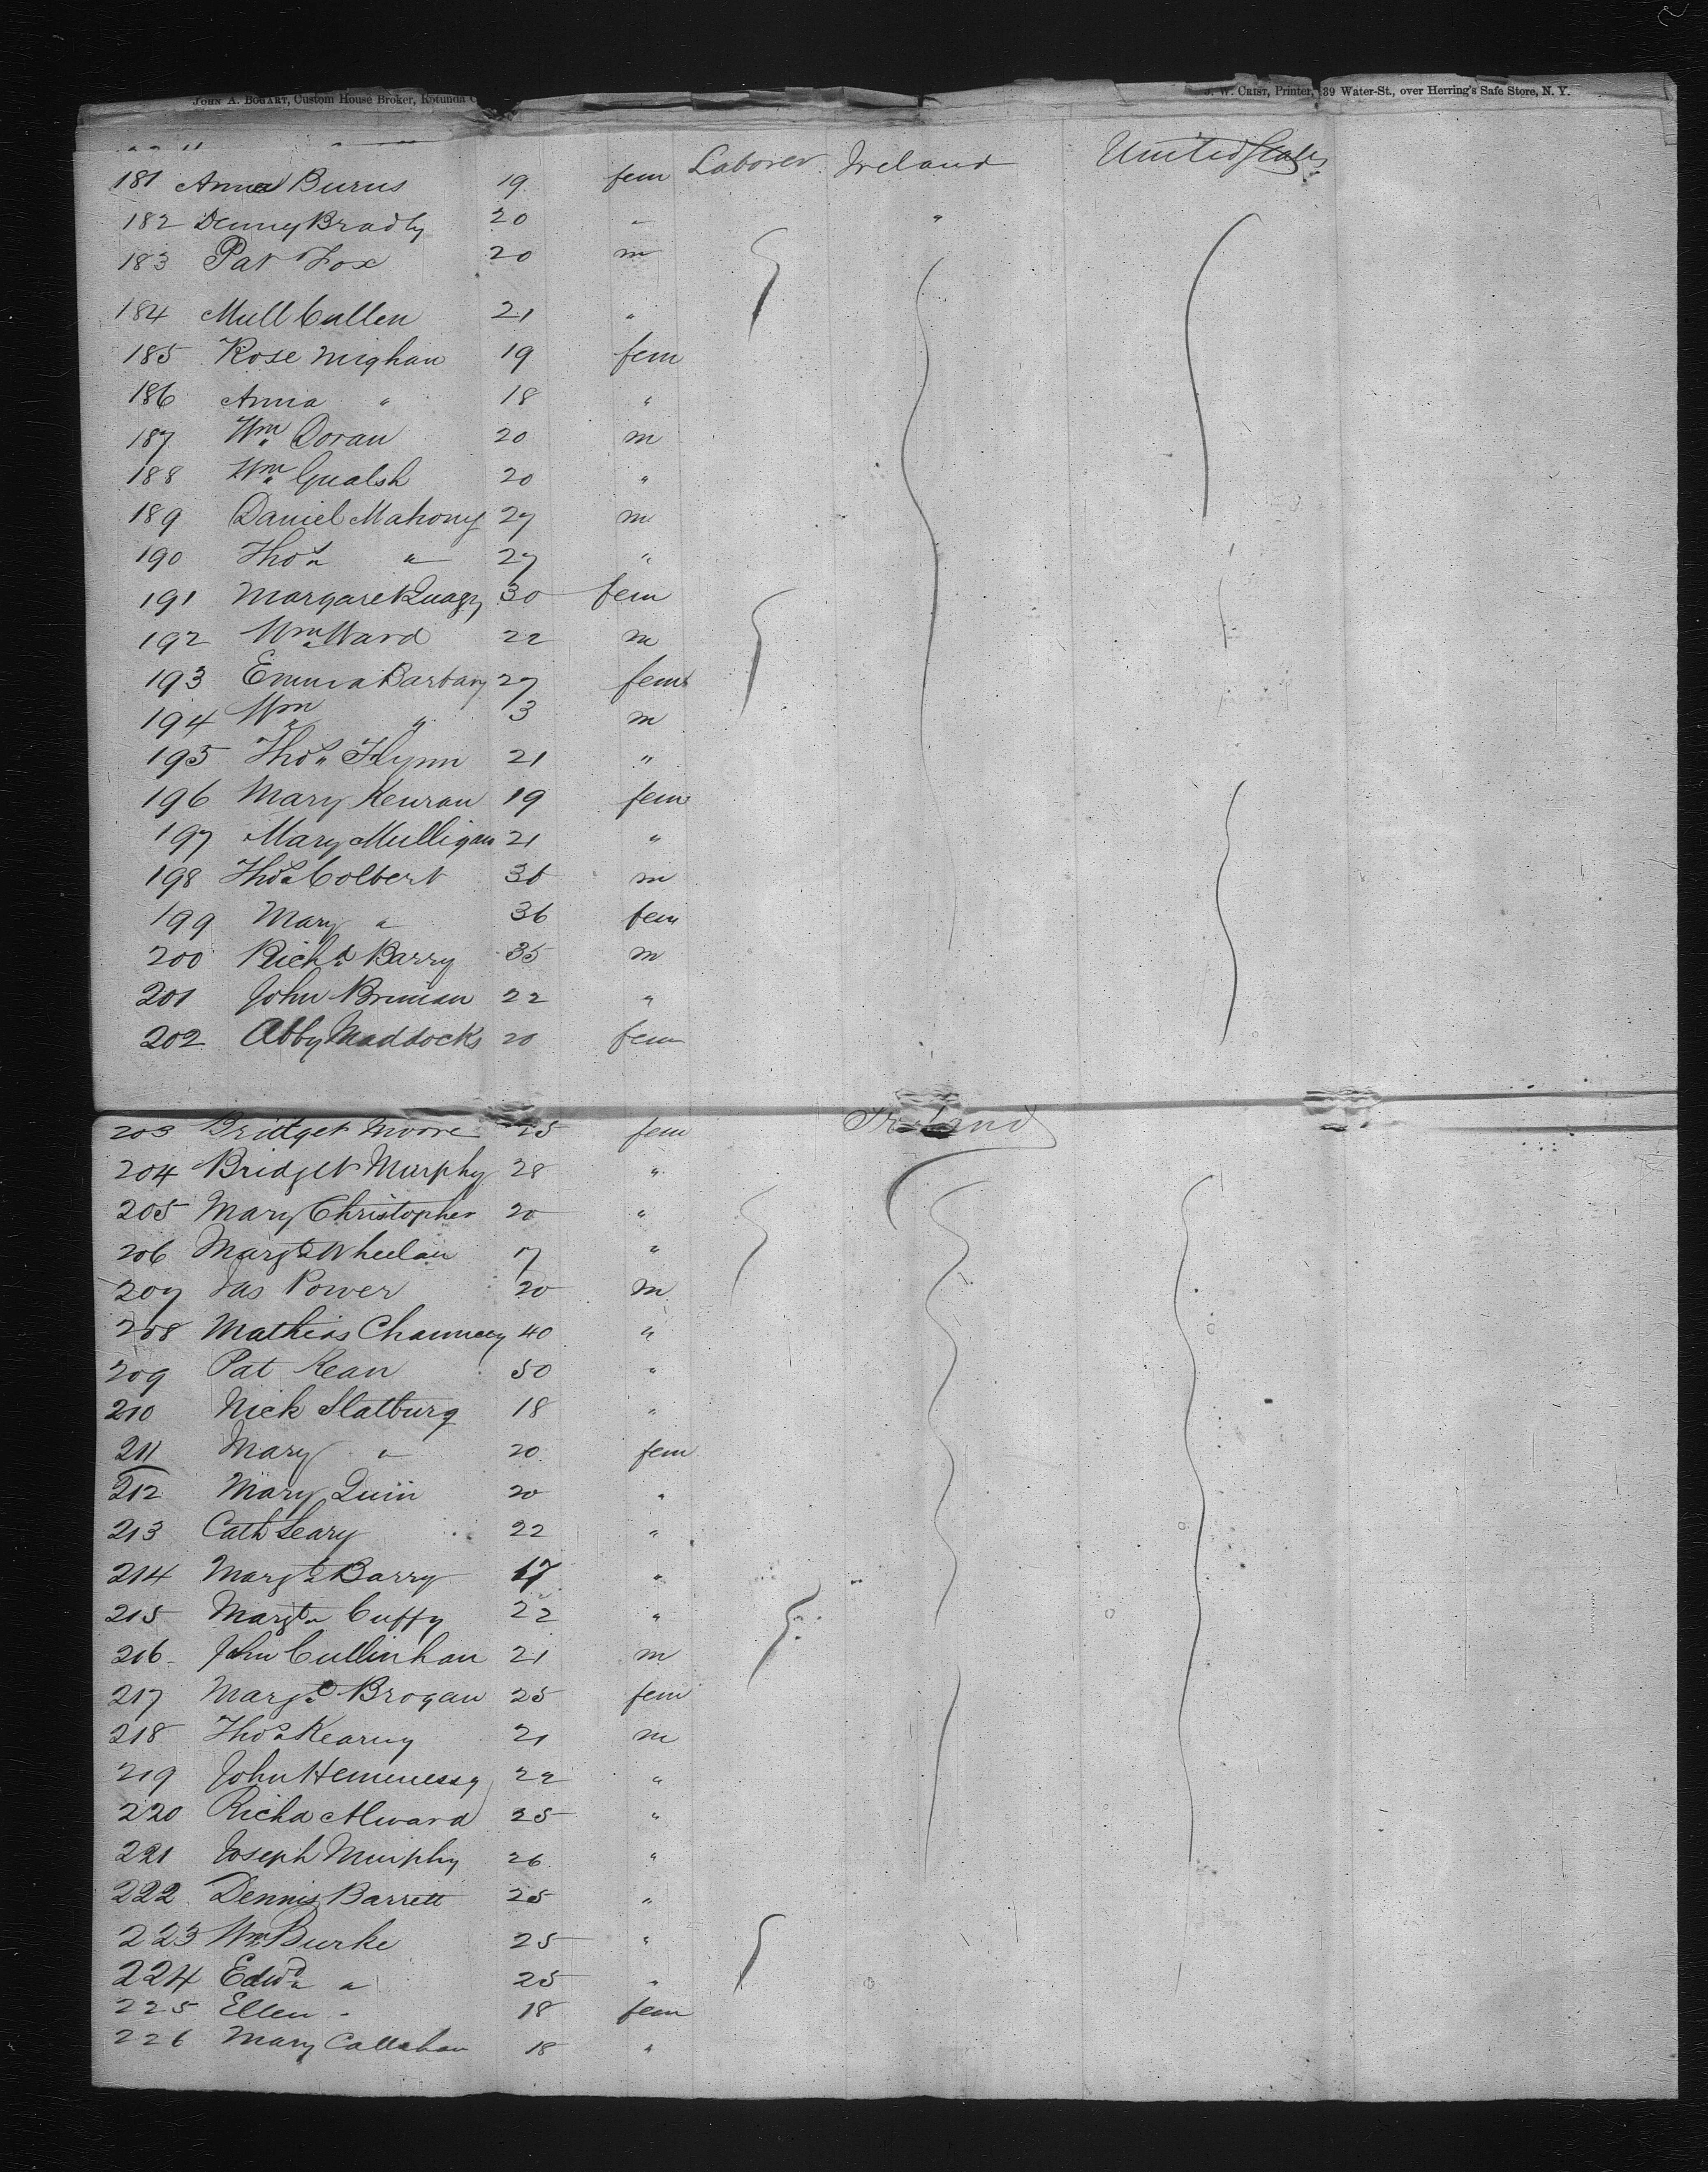 JOHN A. BOGART, Custom House Broker, Rotunda C
J. W. CRIST, Printer, 39 Water-St., over Herring's Safe Store, N. Y.
181 Anna Burns 19 fem Laborer Ireland United States
182 Denny Bradly 20 " "
183 Pat Fox 20 m
184 Mull Cullen 21 "
185 Rose Mighan 19 fem
186 Anna " 18 "
187 Wm Doran 20 m
188 Wm Gualsh 20 "
189 Daniel Mahony 27 m
190 Thos " 27 "
191 Margaret Quagy 30 fem
192 Wm Ward 22 m
193 Emma Barbary 27 fem
194 Wm " 3 m
195 Thos Flynn 21 "
196 Mary Keuran 19 fem
197 Mary Mulligan 21 "
198 Thos Colbert 36 m
199 Mary " 36 fem
200 Richd Barry 35 m
201 John Brinian 22 "
202 Abby Maddocks 20 fem
203 Bridget Moore 25 fem Ireland
204 Bridget Murphy 28 "
205 Mary Christopher 20 "
206 Margt Wheelan 17 "
207 Jas Power 20 m
208 Mathias Chauncey 40 "
209 Pat Kean 50 "
210 Nick Slatburg 18 "
211 Mary " 20 fem
212 Mary Quin 20 "
213 Cath Leary 22 "
214 Margt Barry 17 "
215 Margt Cuffy 22 "
216 John Cullinhan 21 m
217 Margt Brogan 25 fem
218 Thos Kearny 21 m
219 John Hemenessy 22 "
220 Richd Alward 25 "
221 Joseph Murphy 26 "
222 Dennis Barrett 25 "
223 Wm Burke 25 "
224 Edwd " 25 "
225 Ellen " 18 fem
226 Mary Callahan 18 "